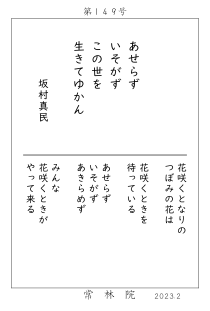 第149号
あせらず
いそがず
この世を
生きてゆかん
坂村真民
花咲くとなりの
つぼみの花は
花咲くときを
待っている
あせらず
いそがず
あきらめず
みんな
花咲くときが
やって来る
常林院
2023.2